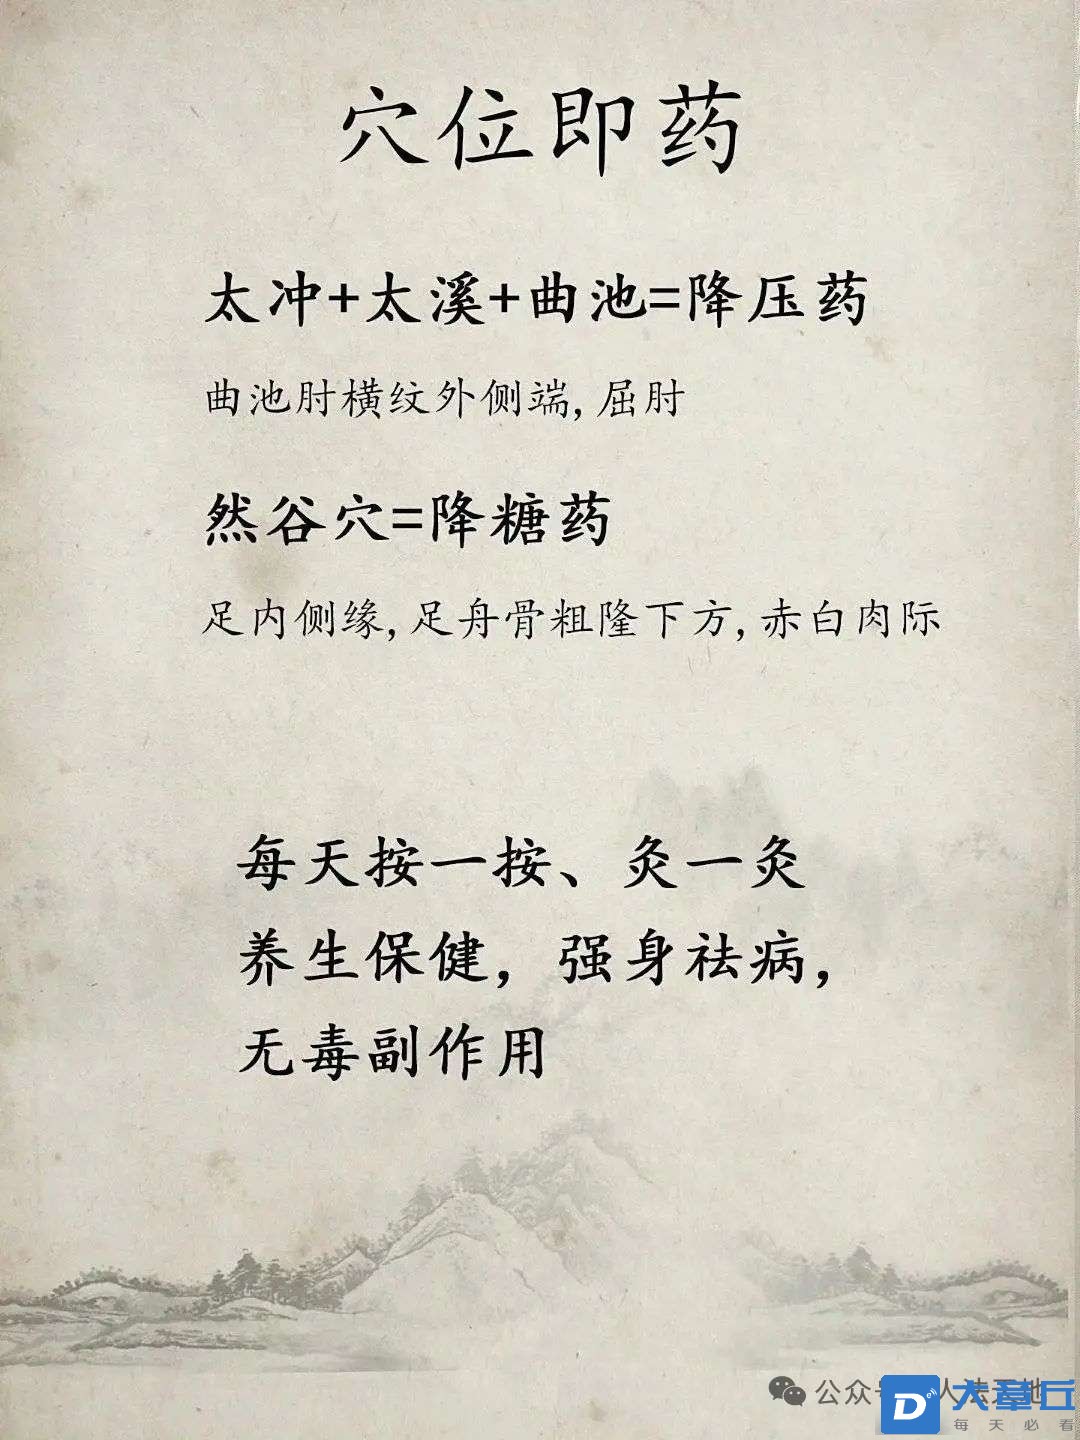 穴位即药
太冲+太溪+曲池=降压药
曲池肘横纹外侧端,屈肘
然谷穴=降糖药
足内侧缘,足舟骨粗隆下方,赤白肉际
每天按一按、灸一灸
养生保健，强身祛病，
无毒副作用
公众 人法 地
D 大章丘
每天必看